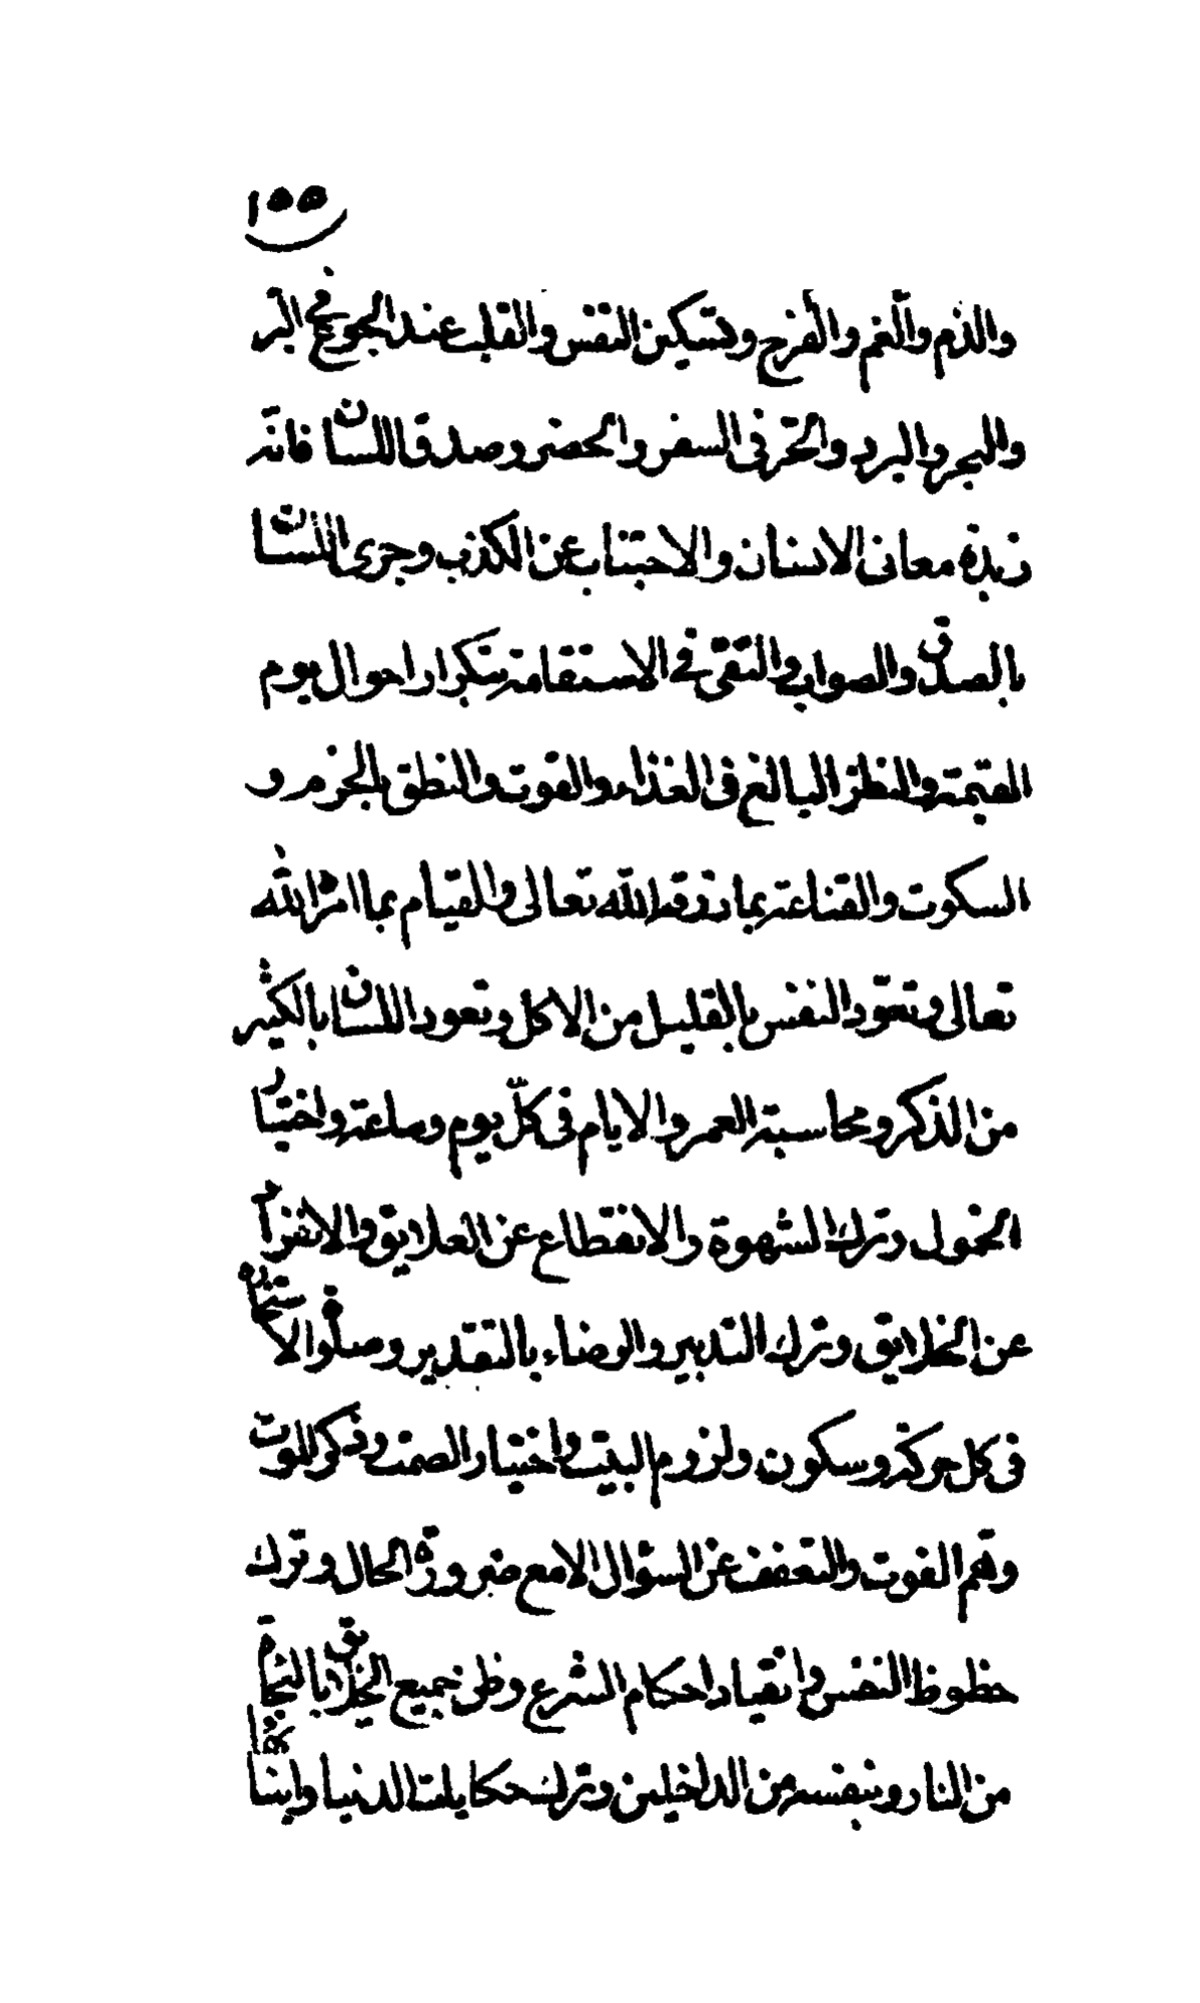 ١٥٥
والذم والغم والفرح وتسكين النفس والقلب عند الجوع في البر
والبحر والبرد والحر في السفر والحضر وصدق اللسان فانه
زبدة معاني الانسان والاجتناب عن الكذب وجرى اللسان
بالصدق والصواب والتقى في الاستقامة بتكرار احوال يوم
القيمة والنظر البالغ في الغذاء والقوت والنطق بالجزم و
السكوت والقناعة بما رزقه الله تعالى والقيام بما امر الله
تعالى وتعود النفس بالقليل من الاكل وتعود اللسان بالكثير
من الذكر ومحاسبة العمر والايام في كل يوم وساعة واختيار
الخمول وترك الشهوة والانقطاع عن العلايق والانفراد
عن الخلايق وترك التدبير والرضاء بالتقدير وصلوة الاستخارة
في كل حركة وسكون ولزوم البيت واختيار الصمت وذكر الموت
وهم الفوت والتعفف عن السؤال الا مع ضرورة الحال وترك
حظوظ النفس وانقياد احكام الشرع وظن جميع الخلايق بالنجاة
من النار وبنفسه من الداخلين وترك حكايات الدنيا وابنائها